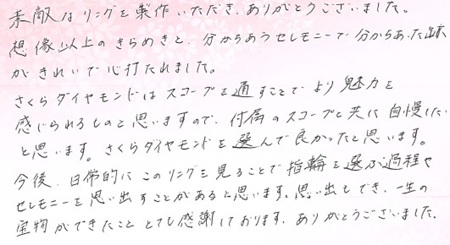 素敵なリングを製作いただき、ありがとうございました。
想像以上のきらめきと、分からあうセレモニーで分からあった
がきれいで心打たれました。
さくらダイヤモンドはスコープを通すことでより魅力を
感じられるものと思いますので、付属のスコープと共に自慢したい
と思います。さくらダイヤモンドを選んで良かったと思います。
今後、日常的にこのリングを見ることで指輪を選ぶ過程や
セレモニーを思い出すことがあると思います。思い出もでき、一生の
宝物ができたこととても感謝しております。ありがとうございました。